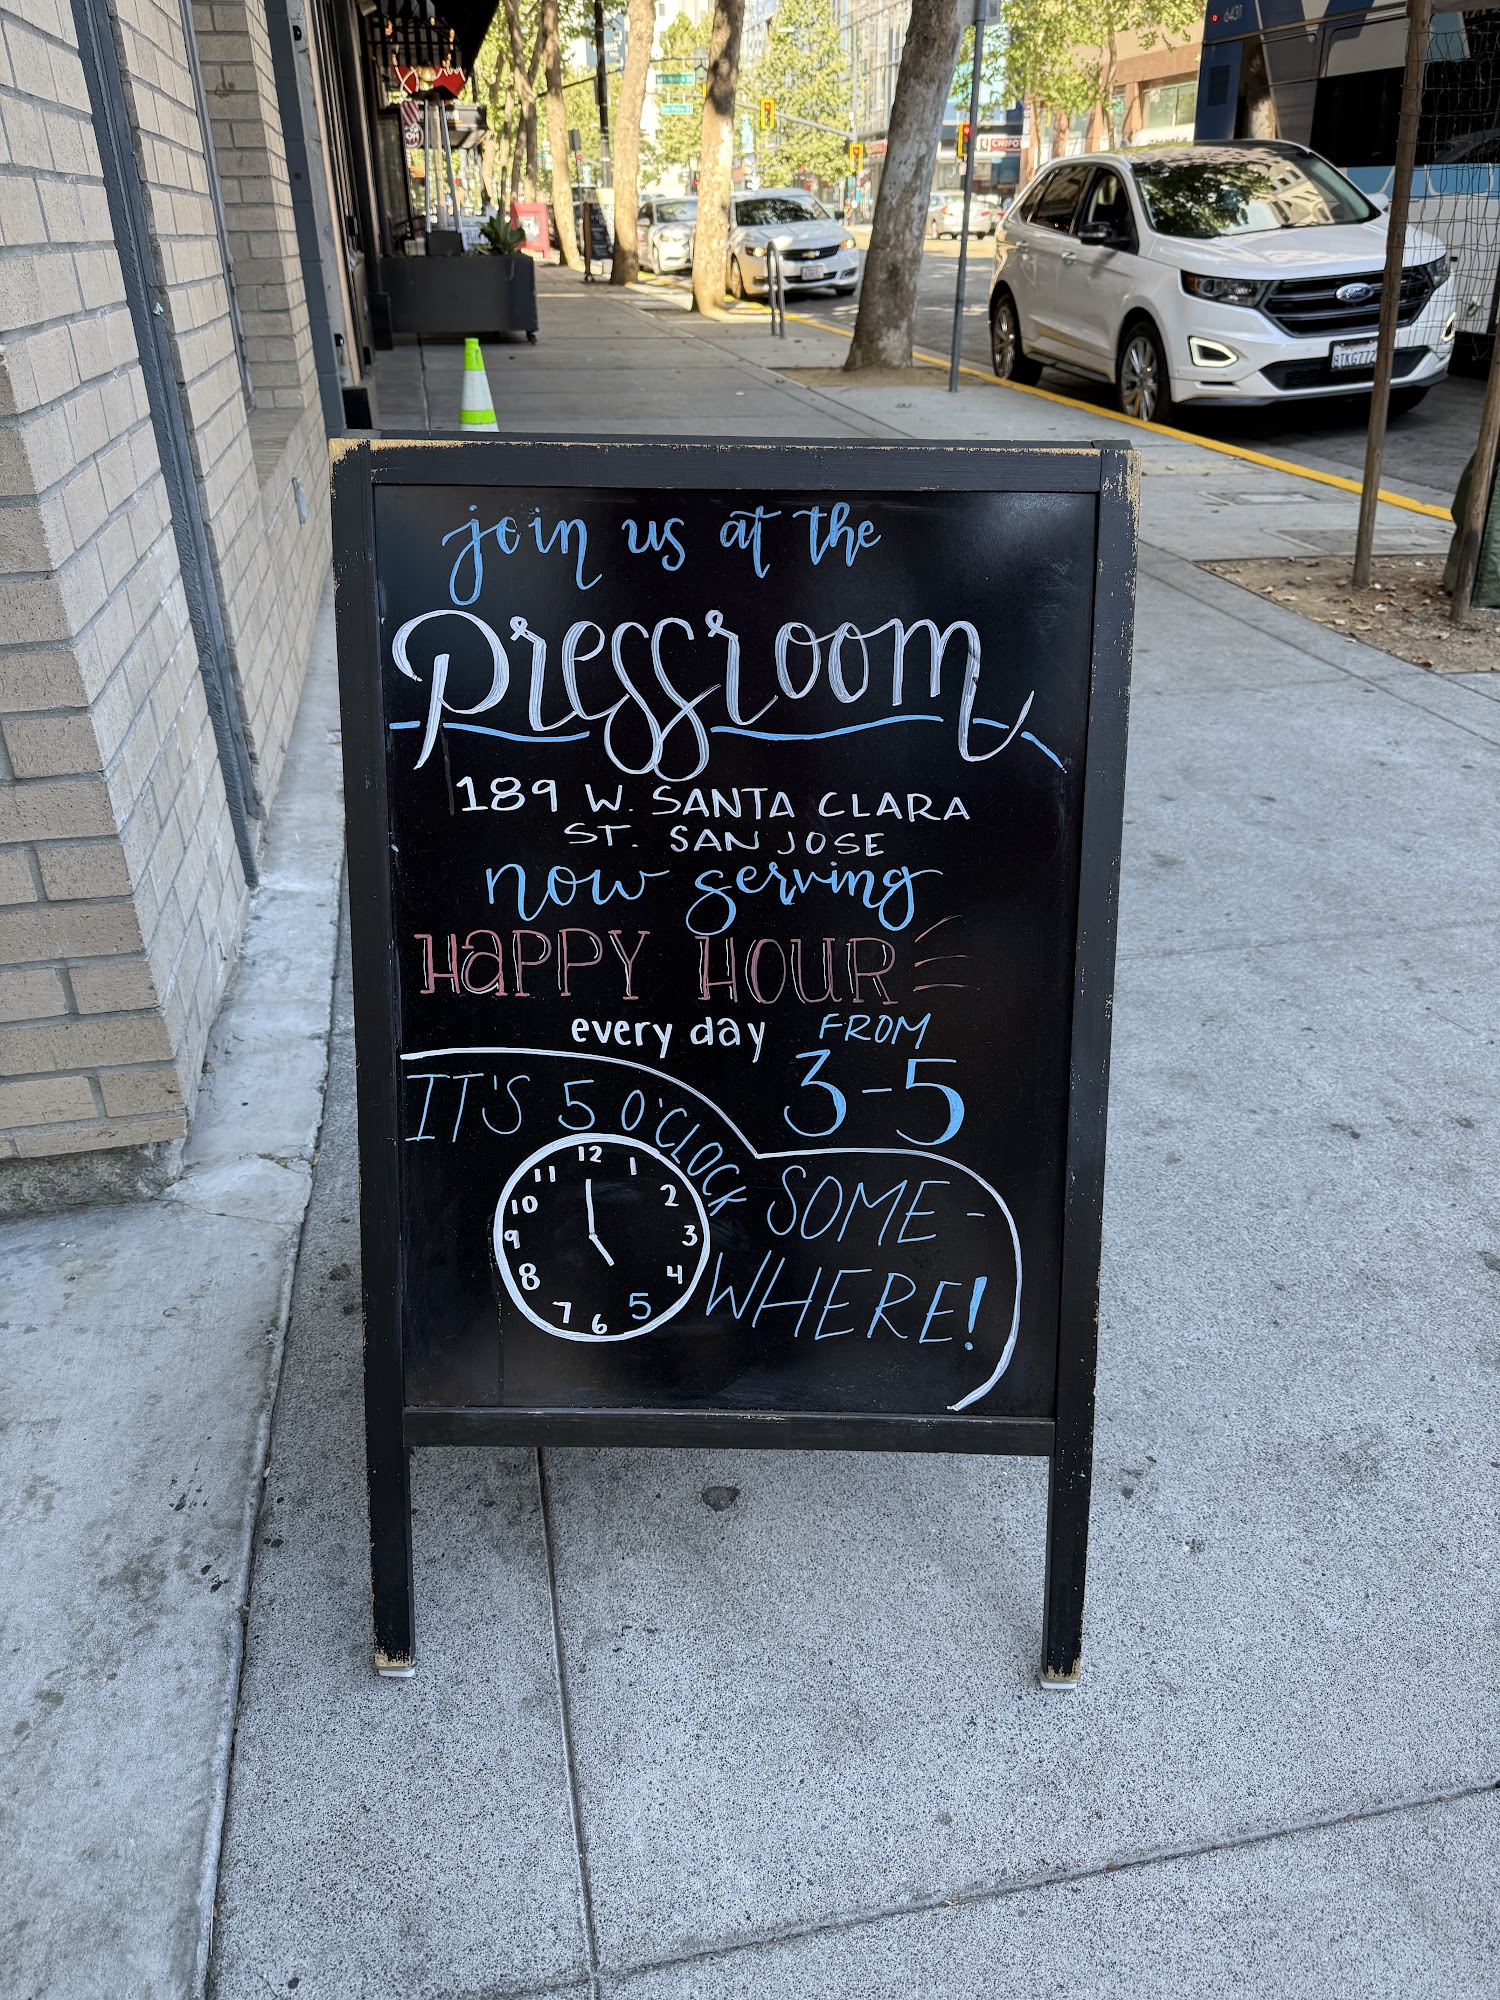 join us at the
pressroom
189 W. SANTA CLARA
ST. SAN JOSE
now serving
HAPPY HOUR
every day FROM
3-5
IT'S 5 O'CLOCK
SOME-
WHERE!
12
1
2
3
4
5
6
7
8
9
10
11
6431
CHIPOT
Ford
8TKG772